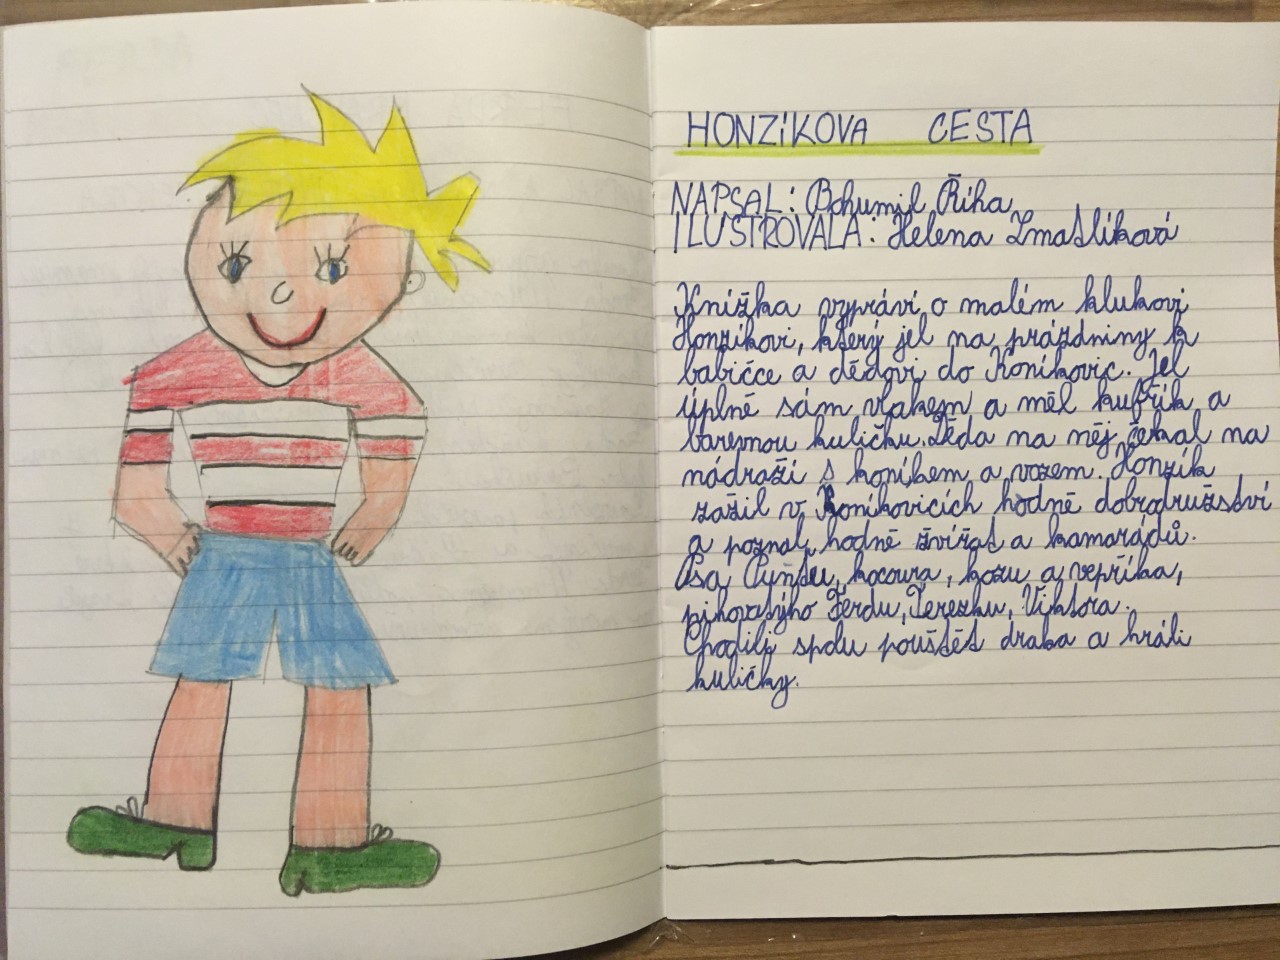 HONZÍKOVA CESTA
NAPSAL: Bohumil Říha
ILUSTROVALA: Helena Zmatlíková
Knížka vypráví o malém klukovi
Honzíkovi, který jel na prázdniny k
babičce a dědovi do Koníkovic. Jel
úplně sám vlakem a měl kufřík a
barevnou kuličku. Děda na něj čekal na
nádraží s koníkem a vozem. Honzík
zažil v Koníkovicích hodně dobrodružství
a poznal hodně zvířat a kamarádů.
Psa Punťu, kocoura, kozu a vepříka,
pihovatýho Ferdu, Terezku, Viktora.
Chodili spolu pouštět draka a hráli
kuličky.